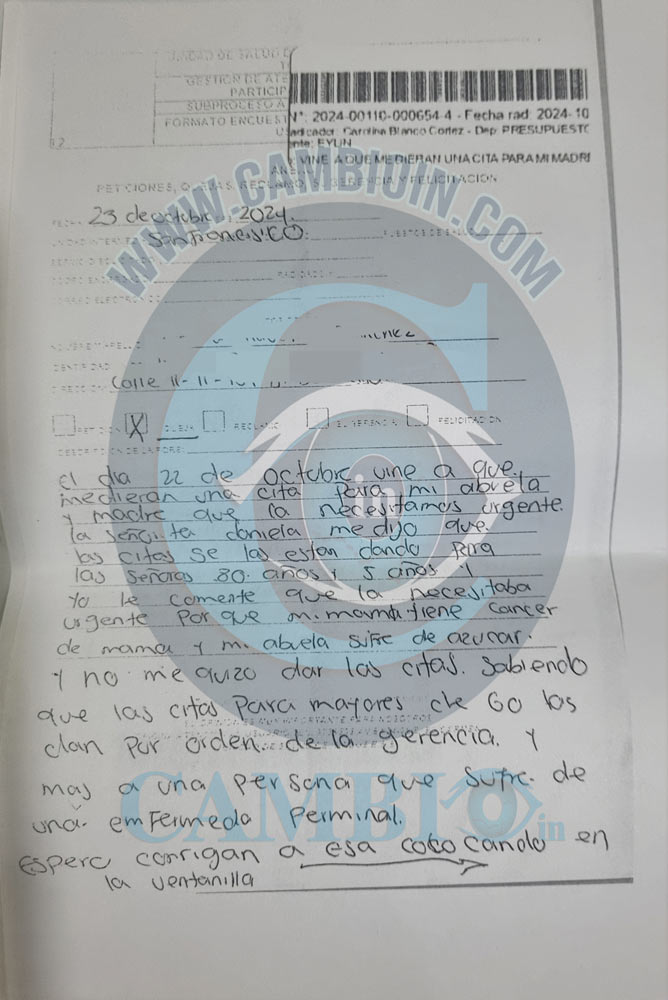 UNIDAD DE SALUD
GESTION DE ATE
PARTICIP
SUBPROCESO A
FORMATO ENCUEST
N°. 2024-00110-000654-4 - Fecha rad 2024-10
Radicador: Carolina Blanco Cortez - Dep: PRESUPUESTO
VINE A QUE ME DIERAN UNA CITA PARA MI MADRE
PETICIONES, QUEJAS, RECLAMO, SUGERENCIA Y FELICITACION
WWW.CAMBIOIN.COM
23 de octubre, 2024.
San Francisico.
CORREO ELECTRONICO
Calle 11-11-
PETICION X QUEJA RECLAMO SUGERENCIA FELICITACION
El dia 22 de octubre vine a que
medieran una cita para mi abuela
y madre que la necesitamos urgente.
la señorita daniela me dijo que
las citas se las estan dando para
las señoras 80 años y 5 años y
Yo le comente que la necesitaba
urgente porque mi mama tiene cancer
de mama y mi abuela sufre de azucar.
Y no me quizo dar las citas. Sabiendo
que las citas para mayores de 60 los
dan por orden de la gerencia. Y
mas a una persona que sufre de
una enfermeda Perminal.
espero corrigan a esa
en
la ventanilla
CAMBIOin